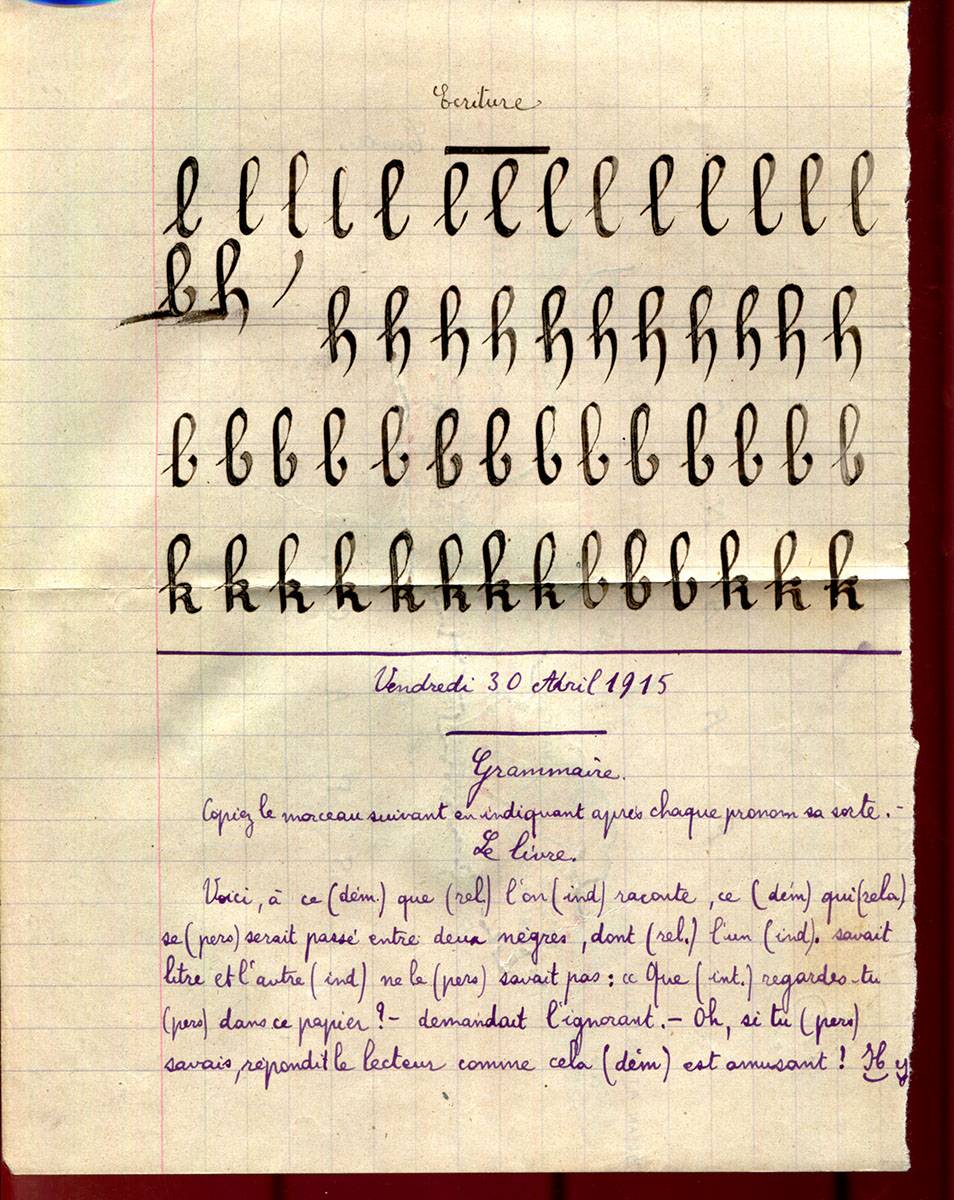 Ecriture
l l l l l l l l l l l l l l
b h
h h h h h h h h h h h
b b b b b b b b b b b b b b
k k k k k k k k b b b k k k
Vendredi 30 Abril 1915
Grammaire.
Copiez le morceau suivant en indiquant après chaque pronom sa sorte.-
Le livre.
Voici, à ce (dém.) que (rel.) l'on (ind) raconte, ce (dém) qui (rela)
se (pers) serait passé entre deux nègres, dont (rel.) l'un (ind). savait
litre et l'autre (ind) ne le (pers) savait pas: « Que (int.) regardes-tu
(pers) dans ce papier ?- demandait l'ignorant.- Oh, si tu (pers)
savais, répondit le lecteur comme cela (dém) est amusant ! Il y